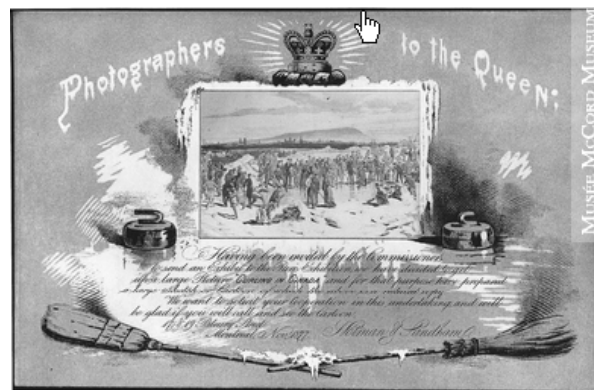 Photographers to the Queen;
Having been invited by the Commissioners
to send an Exhibit to the Paris Exhibition we have decided to get
up a large Picture CURLING in CANADA and for that purpose have prepared
a large sketch of which the above is an reduced copy
We want to solicit your Cooperation in this undertaking and will
be glad if you will call and see the Cartoon.
17 & 19 Bleury Street
Montreal, Nov. 1877.
Notman & Sandham
MUSÉE MCCORD MUSEUM